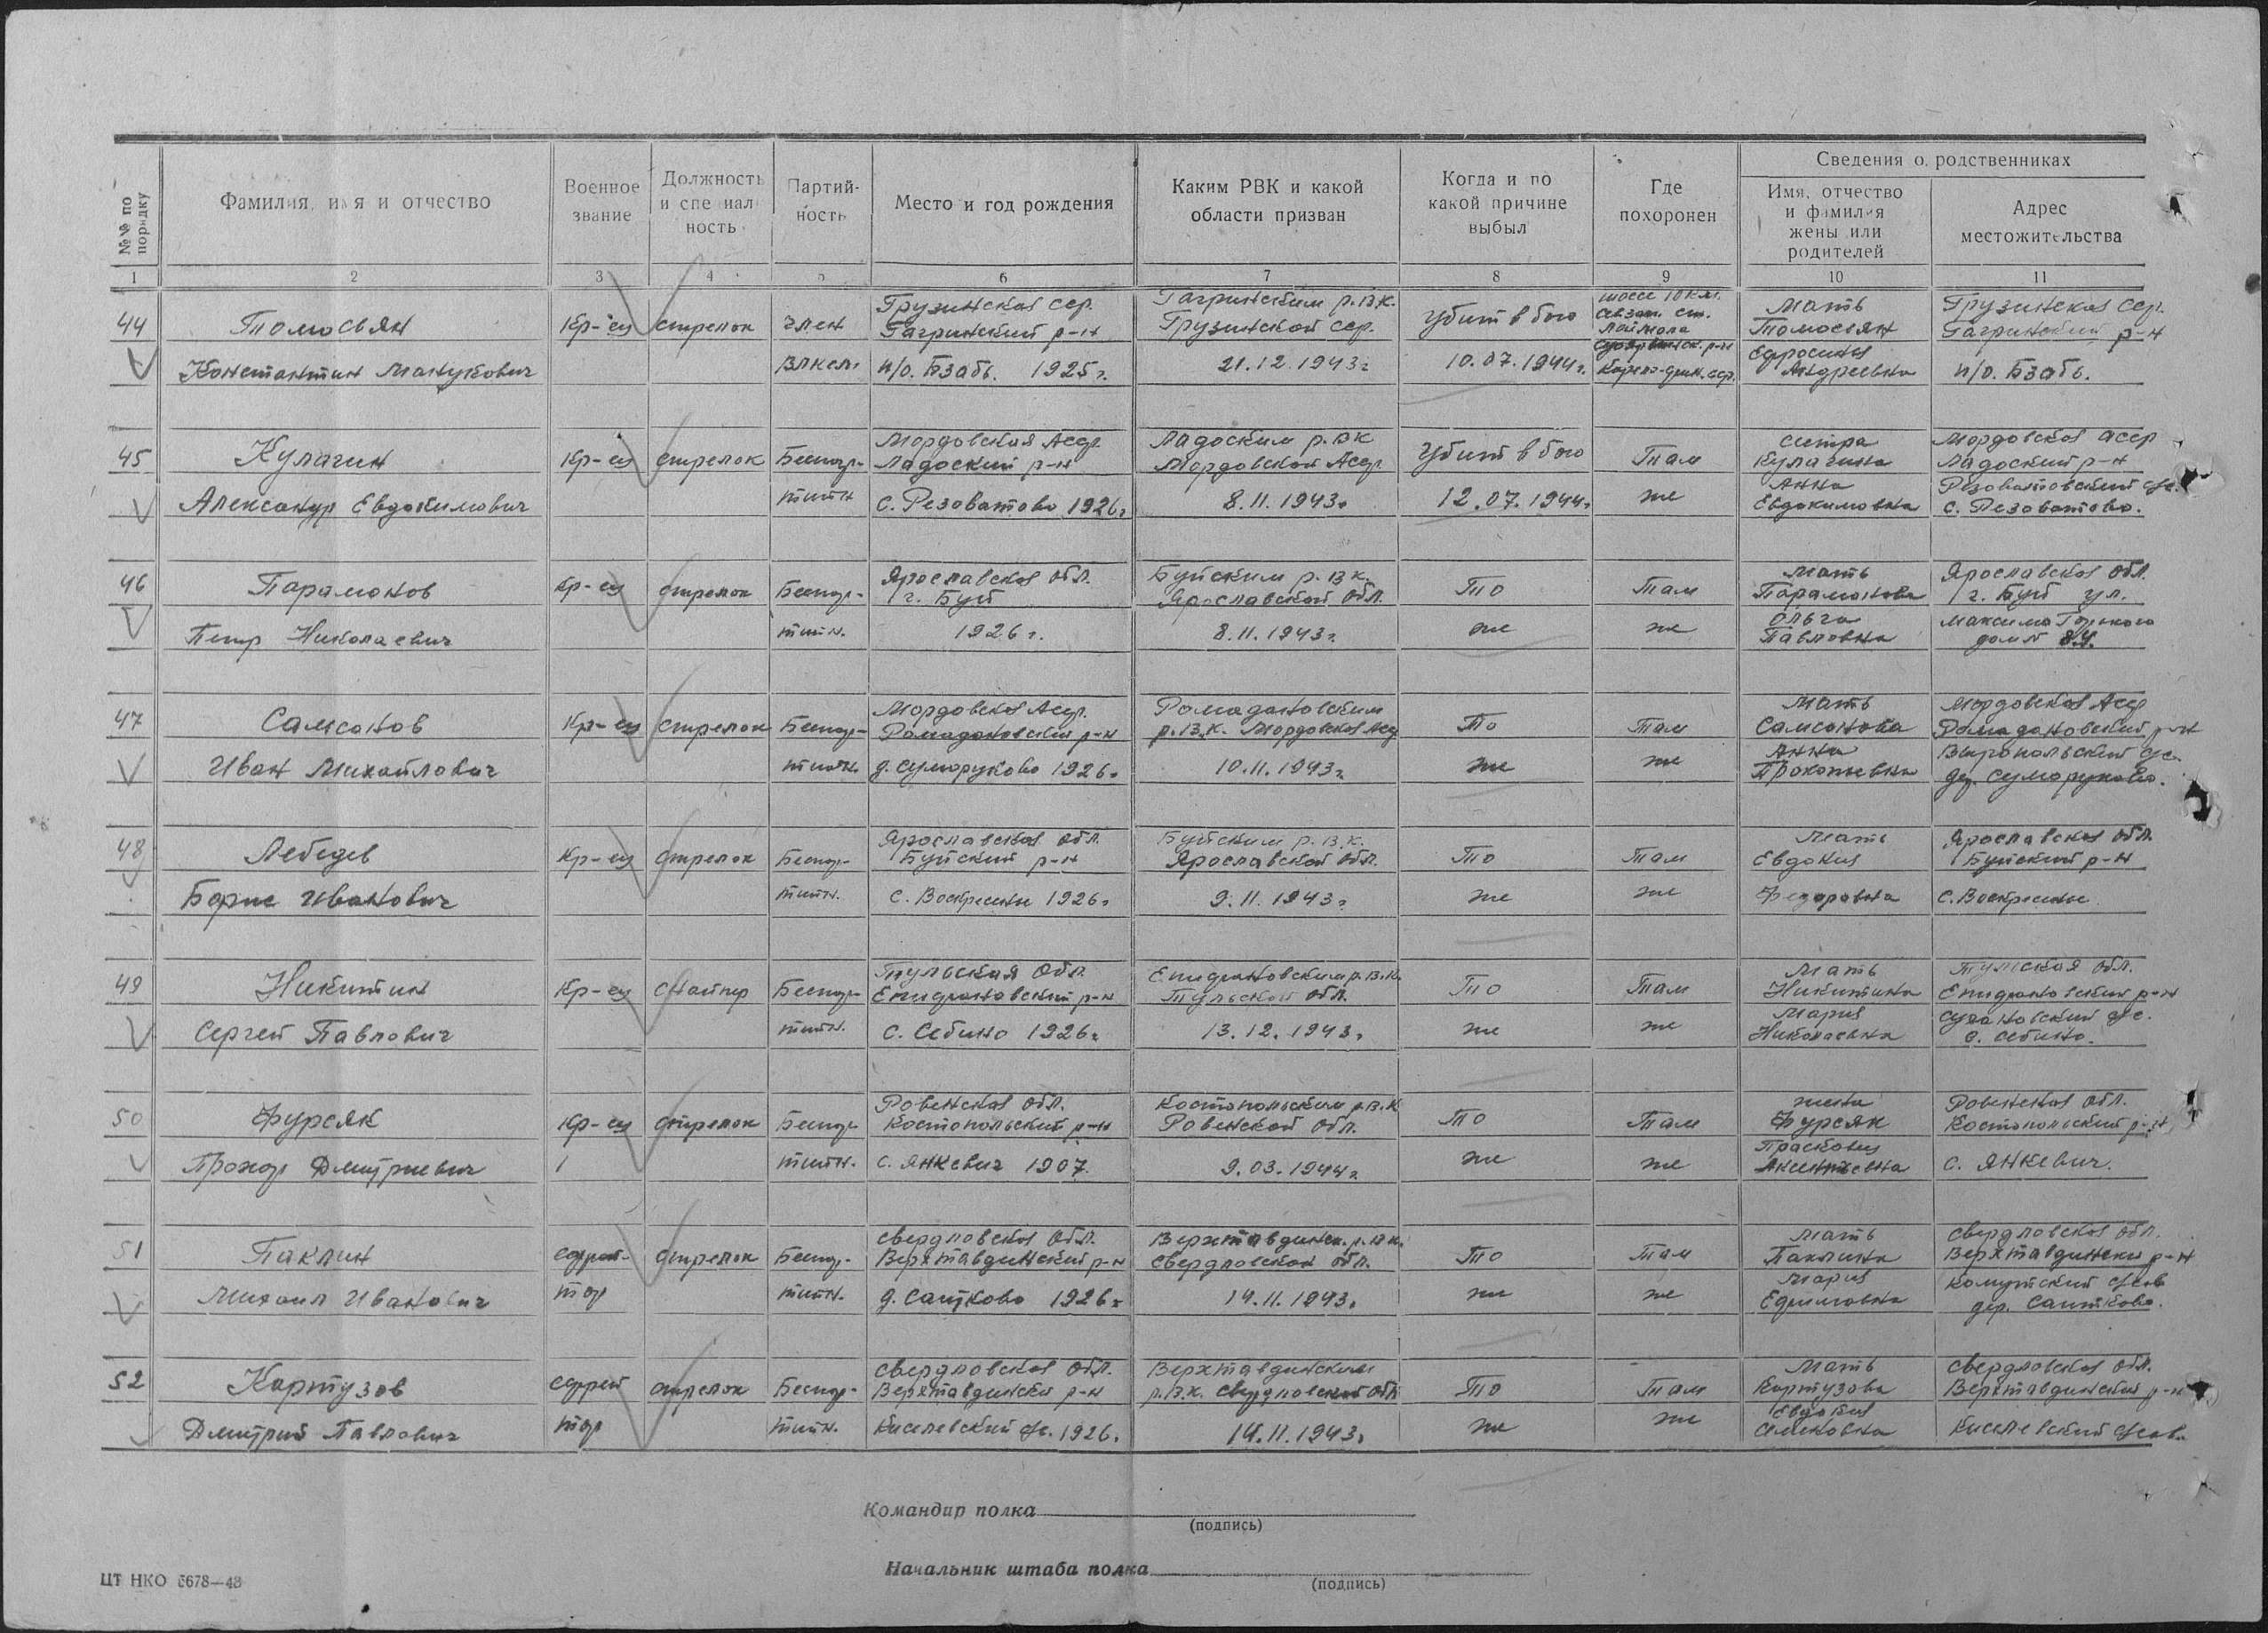 №№ по порядку
Фамилия, имя и отчество
Военное звание
Должность и специальность
Партийность
Место и год рождения
Каким РВК и какой области призван
Когда и по какой причине выбыл
Где похоронен
Сведения о родственниках
Имя, отчество и фамилия жены или родителей
Адрес местожительства
1 2 3 4 5 6 7 8 9 10 11
44 Томосьян Кр-ец стрелок член Грузинская сср. Гагринский р-н Гагринским р.в.к. Грузинской сср. убит в бою шоссе 10 км. сев.зап. ст. Лоймола Мать Томосьян Грузинская сср. Гагринский р-н
Константин Манукович ВЛКСМ п/о. Бзабь. 1925 г. 21.12.1943 г. 10.07.1944 г. Суоярвинск. р-н Карело-фин. сср. Ефросиния Андреевна п/о. Бзабь.
45 Кулагин Кр-ец стрелок Беспар- Мордовская Асср. Ладоский р-н Ладоским р.вк Мордовской Асср. убит в бою Там сестра Кулагина Мордовская асср Ладоский р-н
Александр Евдокимович тийн с. Резоватово 1926 г. 8.11.1943г 12.07.1944г. же Анна Евдокимовна Резоватовский с/с. с. Резоватово.
46 Парамонов Кр-ец стрелок Беспар- Ярославская обл. г. Буй Буйским р.вк. Ярославской обл. То Там Мать Парамонова Ярославская обл. г. Буй ул.
Петр Николаевич тийн. 1926 г. 8.11.1943г. же же Ольга Павловна Максима Горького дом №
47 Самсонов Кр-ец стрелок Беспар- Мордовская Асср. Ромадановский р-н Ромадановским р.в.к. Мордовской Асср То Там Мать Самсонова Мордовская Асср Ромадановский р-н
Иван Михайлович тийн. д. Суморуково 1926г 10.11.1943г. же же Анна Прокопьевна с/с. дер. Суморуково.
48 Лебедев Кр-ец стрелок Беспар- Ярославская обл. Буйский р-н Буйским р.в.к. Ярославской обл. То Там Мать Евдокия Ярославская обл. Буйский р-н
Борис Иванович тийн. с. Воскресенье 1926г 9.11.1943г же же Федоровна с. Воскресенье
49 Никитин Кр-ец снайпер Беспар- Тульская обл. Епифановский р-н Епифановским р.в.к. Тульской обл. То Там Мать Никитина Тульская обл. Епифановский р-н
Сергей Павлович тийн. с. Себино 1926г. 13.12.1943г. же же Мария Николаевна с/с. с. Себино.
50 Фурсяк Кр-ец стрелок Беспар- Ровенская обл. Костопольский р-н Костопольским р.в.к Ровенской обл. То Там жена Фурсяк Ровенская обл. Костопольский р-н
Прохор Дмитриевич тийн. с. Янкевич 1907. 9.03.1944г. же же Прасковия Аксентьевна с. Янкевич.
51 Паклин ефрей- стрелок Беспар- Свердловская обл. Верхтавдинский р-н Верхтавдинск. р.в.к. Свердловской обл. То Там Мать Паклина Свердловская обл. Верхтавдински р-н
Михаил Иванович тор тийн. д. Саитково 1926г 14.11.1943г. же же Мария Ефимовна с/сов дер. Саитково.
52 Картузов ефрей стрелок Беспар- Свердловская обл. Верхтавдински р-н Верхтавдинским р.в.к. Свердловской обл То Там Мать Картузова Свердловская обл. Верхтавдинский р-н
Дмитрий Павлович тор тийн. Киселевский с/с. 1926. 14.11.1943г же же Евдокия Семеновна Киселевский с/сов.
Командир полка
(подпись)
Начальник штаба полка
(подпись)
ЦТ НКО 6678—43